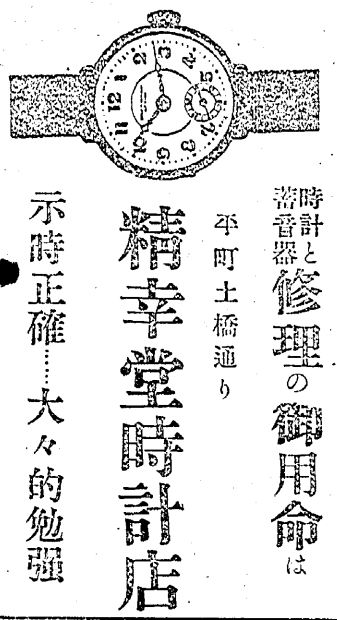 時計と蓄音器修理の御用命は
平町土橋通り
精幸堂時計店
示時正確……大々的勉强